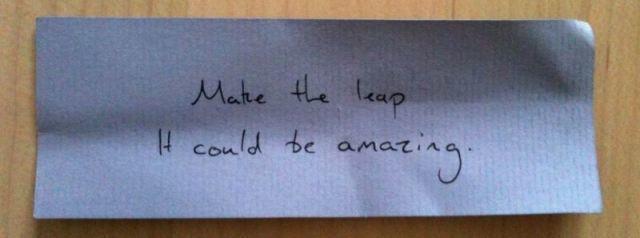 Make the leap
It could be amazing.